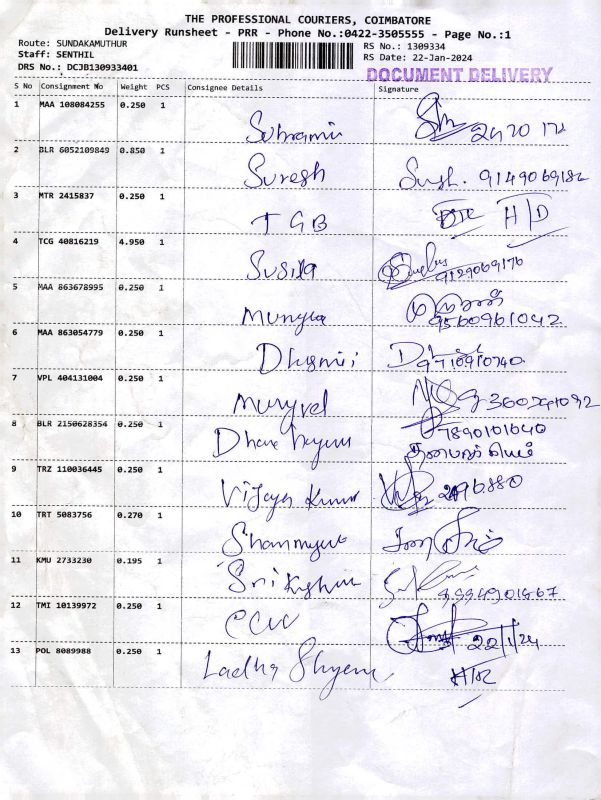 THE PROFESSIONAL COURIERS, COIMBATORE
Delivery Runsheet - PRR - Phone No.:0422-3505555 - Page No.:1
Route: SUNDAKAMUTHUR
RS No.: 1309334
Staff: SENTHIL
RS Date: 22-Jan-2024
DRS No.: DCJB130933401
DOCUMENT DELIVERY
S No Consignment No Weight PCS Consignee Details Signature
1 MAA 108084255 0.250 1
2 BLR 6052109849 0.850 1
Suresh
3 MTR 2415837 0.250 1
T G B H/D
4 TCG 40816219 4.950 1
Susila 9129069176
5 MAA 863678995 0.250 1
9560961042
6 MAA 863054779 0.250 1
9710910740
7 VPL 404131004 0.250 1
Muryvel
8 BLR 2150628354 0.250 1
7890101040
9 TRZ 110036445 0.250 1
Vijaya Kumar
10 TRT 5083756 0.270 1
11 KMU 2733230 0.195 1
12 TMI 10139972 0.250 1
22/1/24
13 POL 8089988 0.250 1
Ladha Shyem